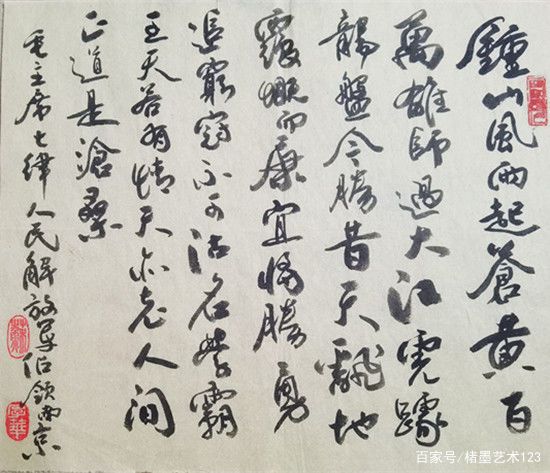 鍾山風雨起蒼黃百
萬雄師過大江虎踞
龍盤今勝昔天飜地
覆慨而慷宜將勝勇
追窮寇不可沽名學霸
王天若有情天亦老人間
正道是滄桑
毛主席七律人民解放軍佔領南京
百家号/楮墨艺术123